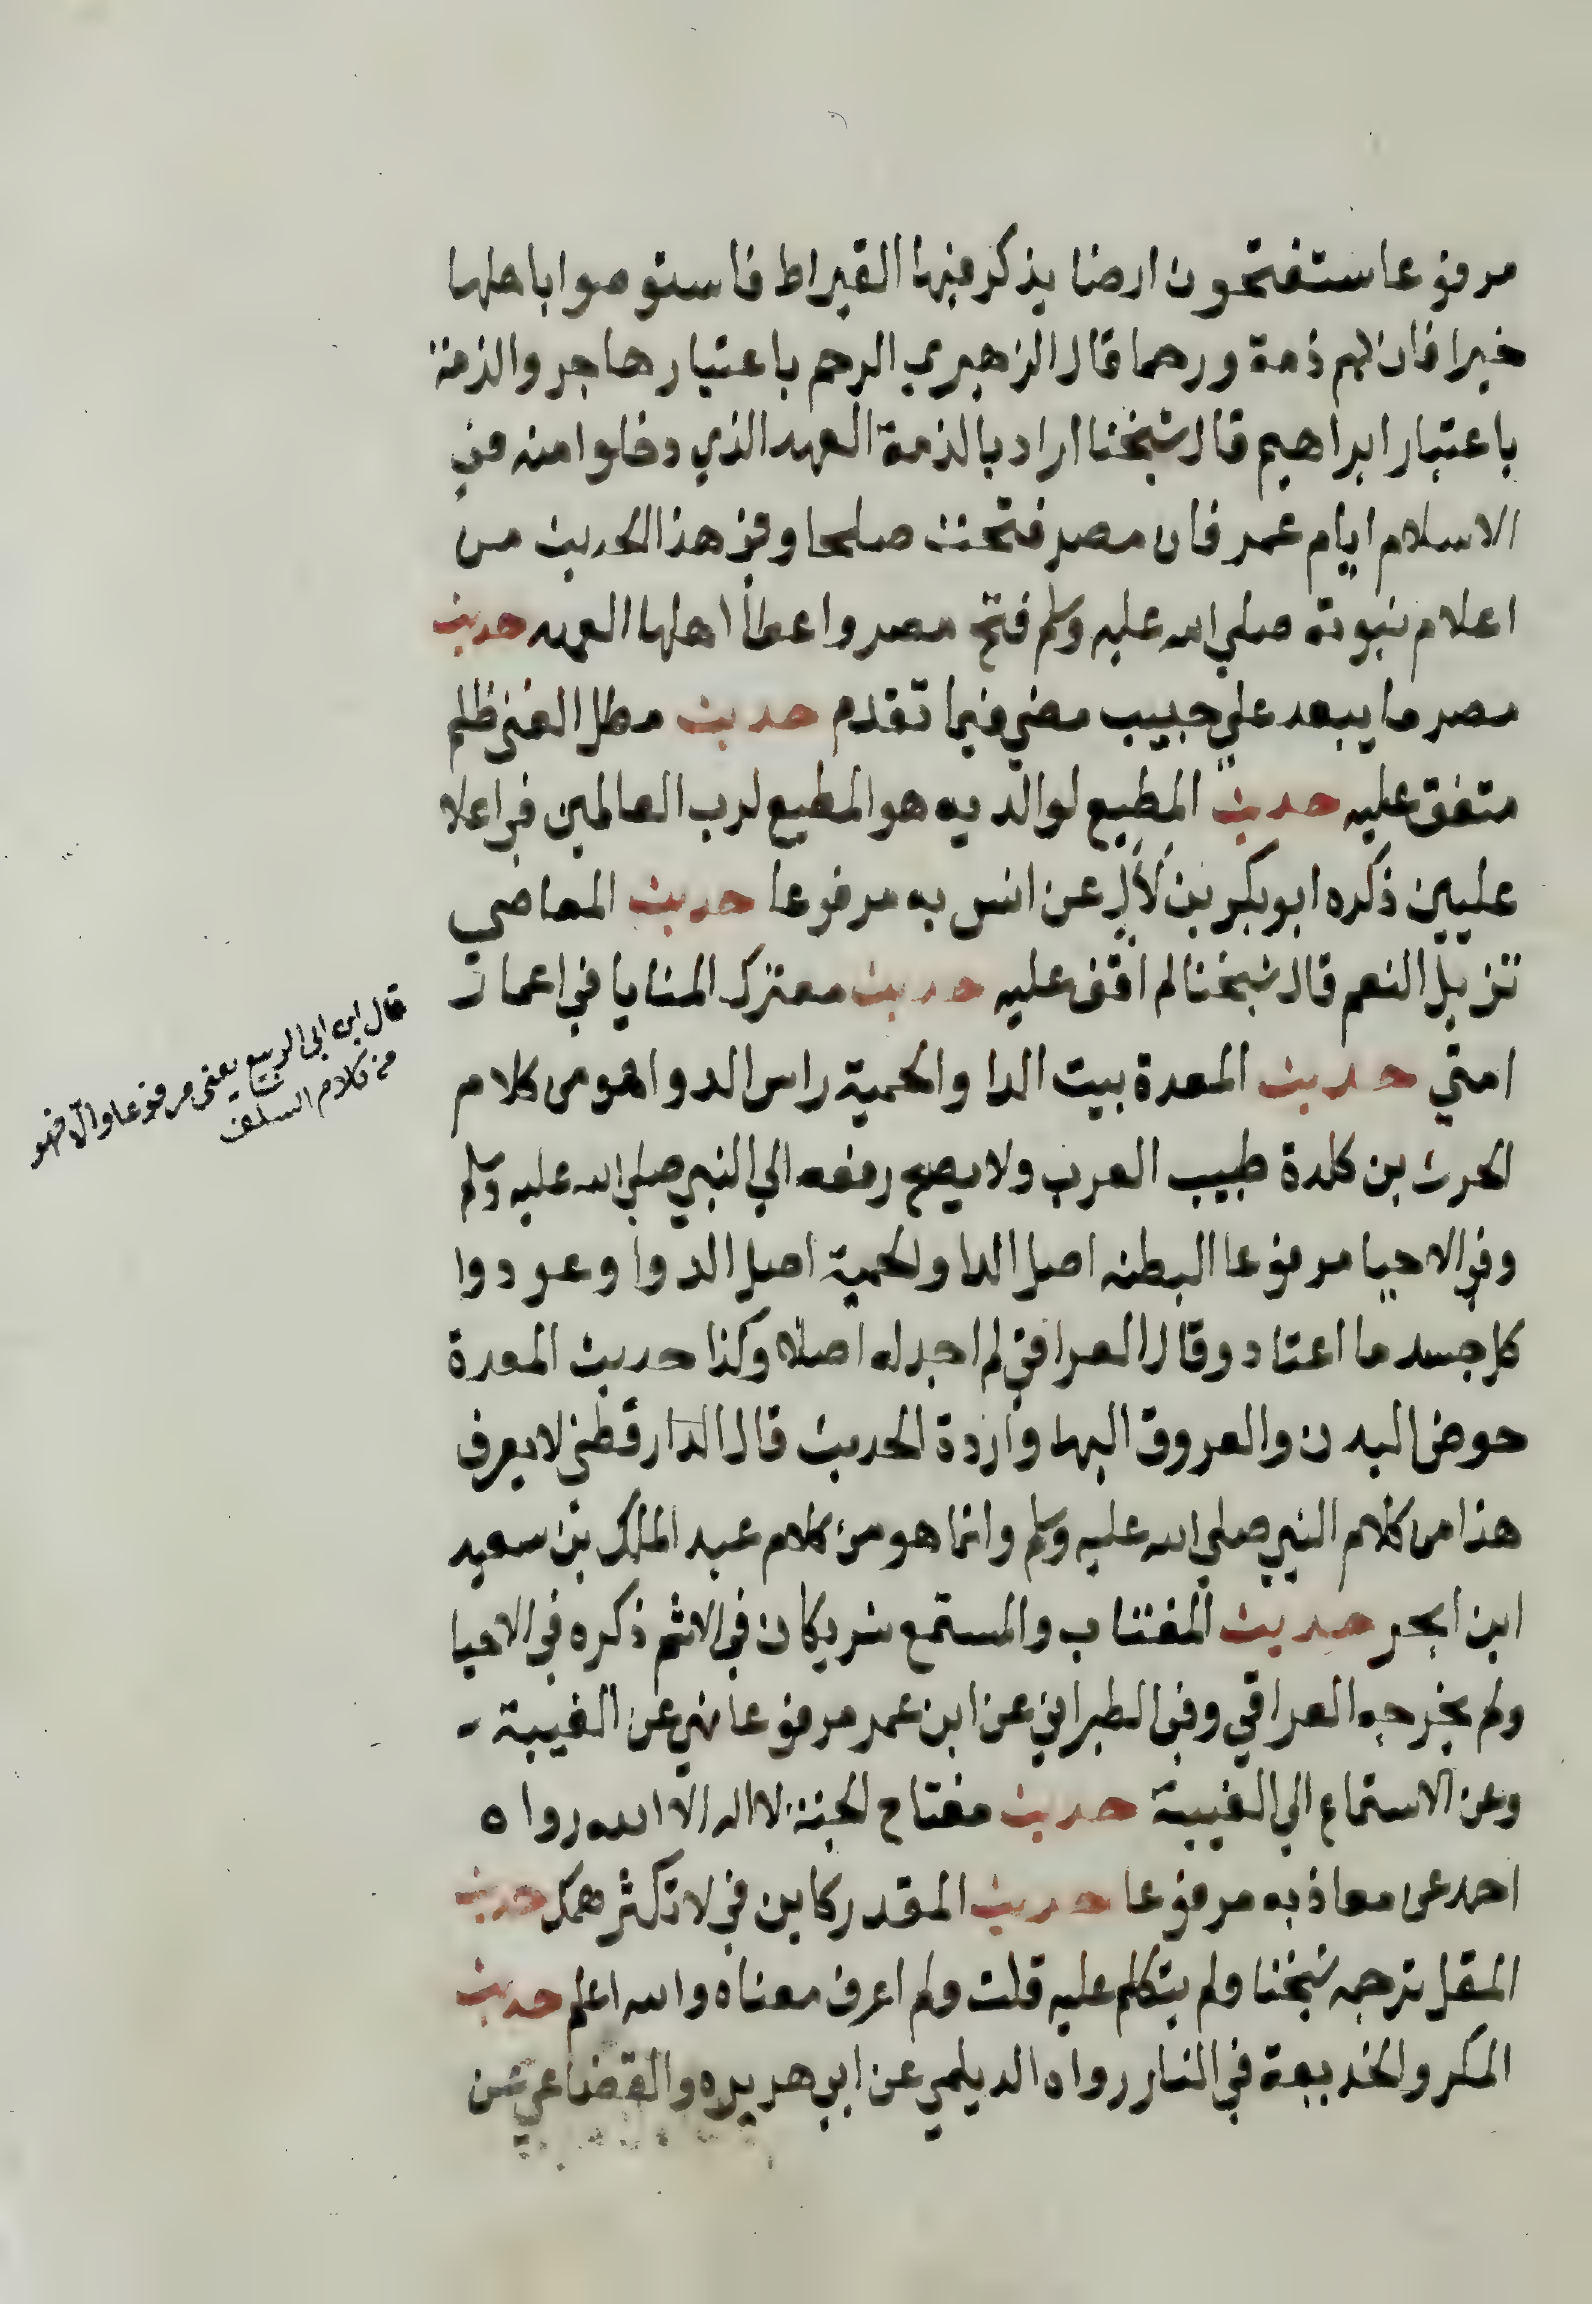 مرفوعا ستفتحون ارضا يذكر فيها القيراط فاستوصوا باهلها
خيرا فان لهم ذمة ورحما قال الزهري الرحم باعتبار هاجر والذمة
باعتبار ابراهيم قال شيخنا اراد بالذمة العهد الذي دخلوا منه في
الاسلام ايام عمر فان مصر فتحت صلحا وفي هذا الحديث من
اعلام نبوته صلي الله عليه وسلم فتح مصر واعطا اهلها العهد حديث
مصر ما يبعد علي حبيب مضي فيما تقدم حديث مطل الغني ظلم
متفق عليه حديث المطيع لوالديه هو المطيع لرب العالمين في اعلا
عليين ذكره ابو بكر بن لال عن انس به مرفوعا حديث المعاصي
تزيل النعم قال شيخنا لم اقف عليه حديث معترك المنايا في اعمار
امتي حديث المعدة بيت الدا والحمية راس الدوا هو من كلام
الحرث بن كلدة طبيب العرب ولا يصح رفعه الي النبي صلي الله عليه وسلم
وفي الاحيا مرفوعا البطنه اصل الدا والحمية اصل الدوا وعودوا
كل جسد ما اعتاد وقال العراقي لم اجد له اصلا وكذا حديث المعدة
حوض البدن والعروق اليها واردة الحديث قال الدارقطني لا يعرف
هذا من كلام النبي صلي الله عليه وسلم وانما هو من كلام عبد الملك بن سعيد
ابن ابجر حديث المغتاب والمستمع شريكان في الاثم ذكره في الاحيا
ولم يخرجه العراقي وفي الطبراني عن ابن عمر مرفوعا نهي عن الغيبة
وعن الاستماع الي الغيبة حديث مفتاح الجنة لا اله الا الله رواه
احمد عن معاذ به مرفوعا حديث المقدر كاين في لا تكثر همك حديث
المقل ترجمه شيخنا ولم يتكلم عليه قلت ولم اعرف معناه والله اعلم حديث
المكر والخديعة في النار رواه الديلمي عن ابي هريره والقضاعي عن
قال ابن ابي الربيع يعني مرفوعا والا فهو
من كلام السلف